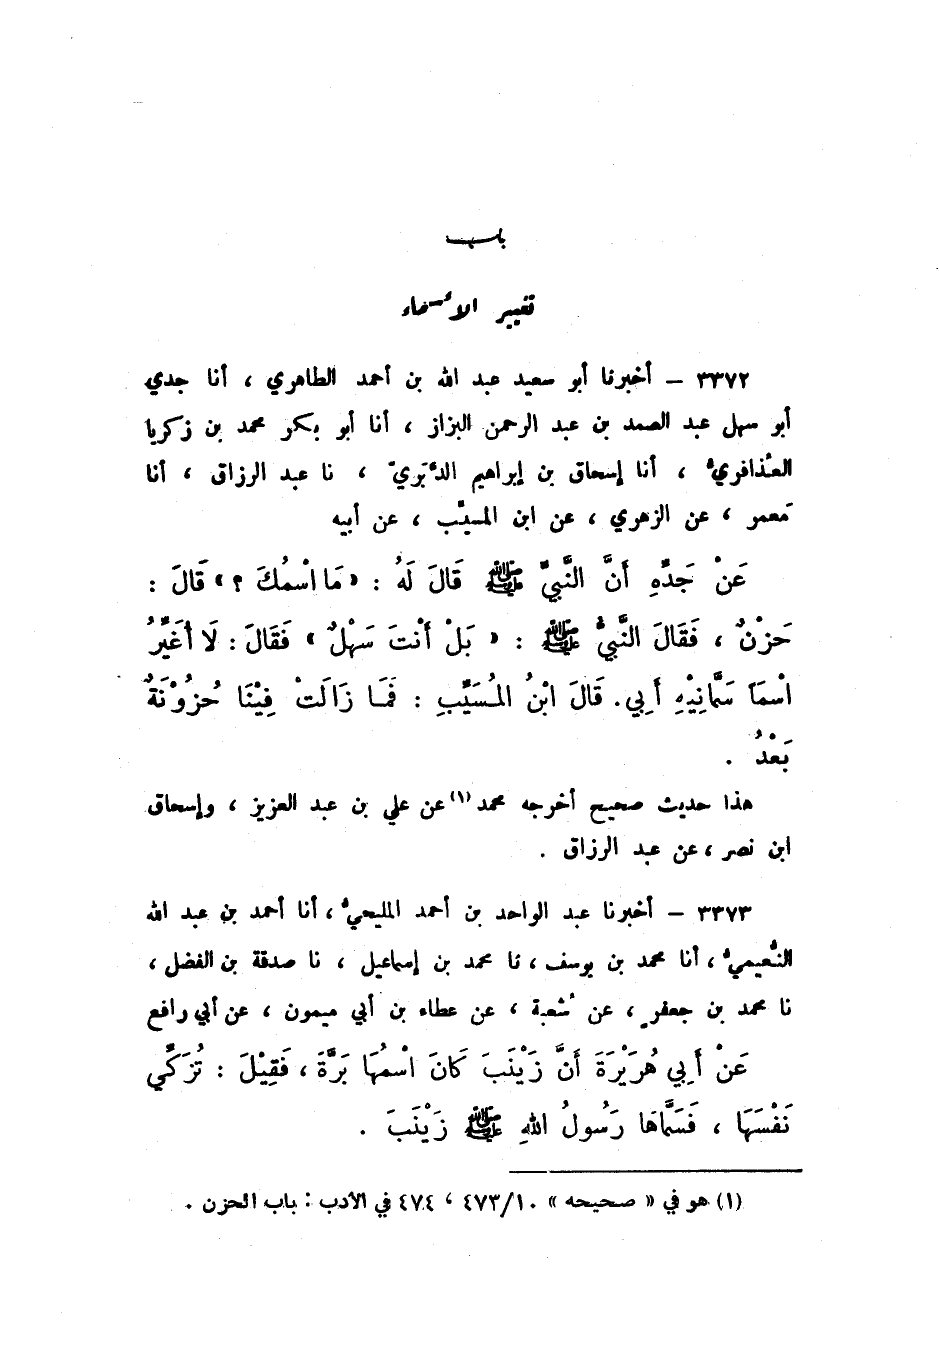 باب
تغيير الأسماء
٣٣٧٢ – أخبرنا أبو سعيد عبد الله بن أحمد الطاهري ، أنا جدي
أبو سهل عبد الصمد بن عبد الرحمن البزاز ، أنا أبو بكر محمد بن زكريا
العُذافريُّ ، أنا إسحاق بن إبراهيم الدَّبَريّ ، نا عبد الرزاق ، أنا
مَعمر ، عن الزهري ، عن ابن المسيَّب ، عن أبيه
عَنْ جَدِّهِ أَنَّ النَّبِيَّ ﷺ قَالَ لَهُ : « مَا اسْمُكَ ؟ » قَالَ :
حَزْنٌ ، فَقَالَ النَّبِيُّ ﷺ : « بَلْ أَنْتَ سَهْلٌ » فَقَالَ : لَا أُغَيِّرُ
اسْمَاً سَمَّانِيْهِ أَبِي . قَالَ ابْنُ المُسَيِّبِ : فَمَا زَالَتْ فِيْنَا حُزُوْنَةٌ
بَعْدُ .
هذا حديث صحيح أخرجه محمد (١) عن علي بن عبد العزيز ، وإسحاق
ابن نصر ، عن عبد الرزاق .
٣٣٧٣ – أخبرنا عبد الواحد بن أحمد المليحيُّ ، أنا أحمد بن عبد الله
النُّعيميُّ ، أنا محمد بن يوسف ، نا محمد بن إسماعيل ، نا صدقة بن الفضل ،
نا محمد بن جعفرٍ ، عن شُعبة ، عن عطاء بن أبي ميمون ، عن أبي رافع
عَنْ أَبِي هُرَيْرَةَ أَنَّ زَيْنَبَ كَانَ اسْمُهَا بَرَّةَ ، فَقِيْلَ : تُزَكِّي
نَفْسَهَا ، فَسَمَّاهَا رَسُولُ اللهِ ﷺ زَيْنَبَ .
(١) هو في « صحيحه » ٤٧٣/١٠ ، ٤٧٤ في الأدب : باب الحزن .